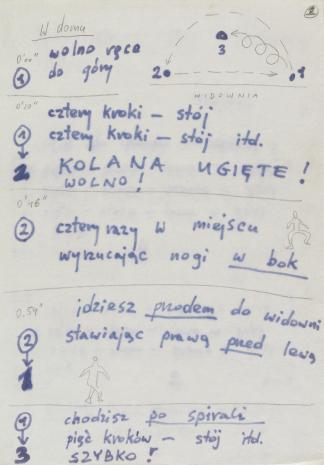 2
W domu
0'00"
1
wolno ręce
do góry
3
2
1
WIDOWNIA
0'10"
cztery kroki – stój
1
cztery kroki – stój itd.
2
KOLANA UGIĘTE!
WOLNO!
0'46"
2
cztery razy w miejscu
wyrzucając nogi w bok
0.54"
idziesz przodem do widowni
2
stawiając prawą przed lewą
1
1
chodzisz po spirali
pięć kroków – stój itd.
3
SZYBKO!